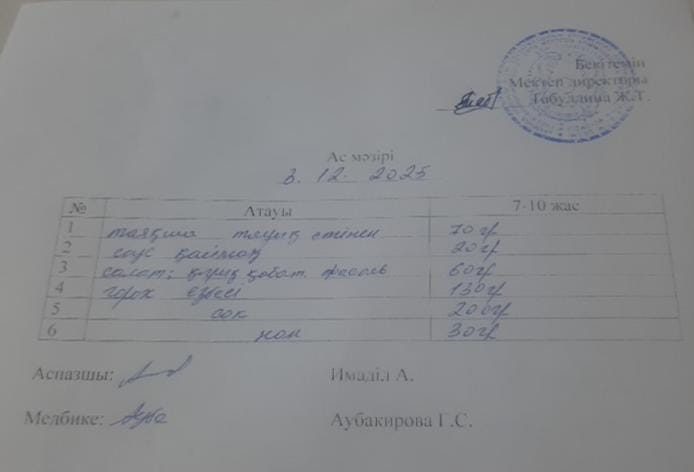 Бекітемін
Мектеп директоры
Табулдина Ж.Т.
Ас мәзірі
3. 12. 2025
№ Атауы 7-10 жас
1 таяқша тауық етінен 70 гр
2 соус қаймақ 20 гр
3 салат; қырыққабат. фасоль 60 гр
4 горох езбесі 130 гр
5 сок 200 гр
6 нан 30 гр
Аспазшы: Имаділ А.
Медбике: Аубакирова Г.С.